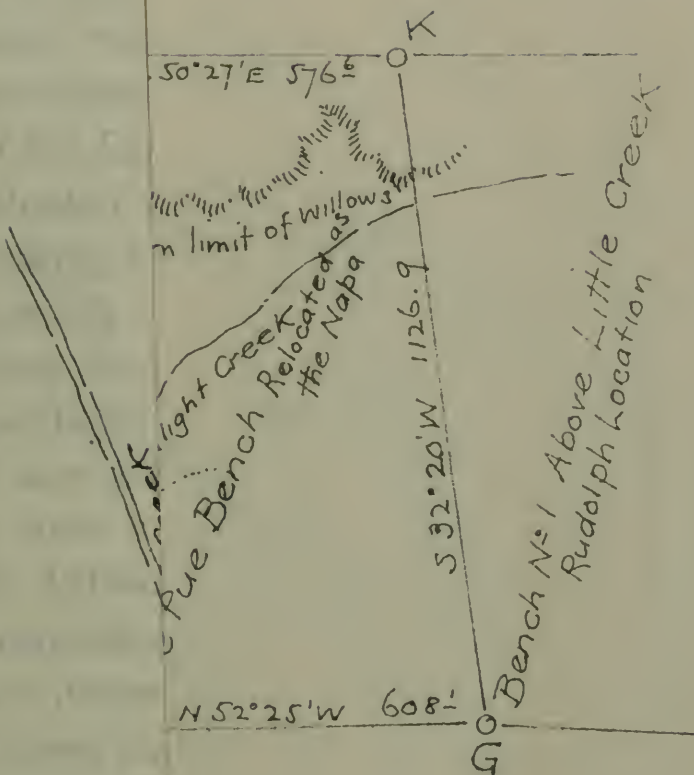 K
50°27'E 576⁶
n limit of willows
light Creek
e Pue Bench Relocated as
the Napa
S 32°20'W 1126.9
Bench Nº 1 Above Little Creek
Rudolph Location
N 52°25'W 608¹
G